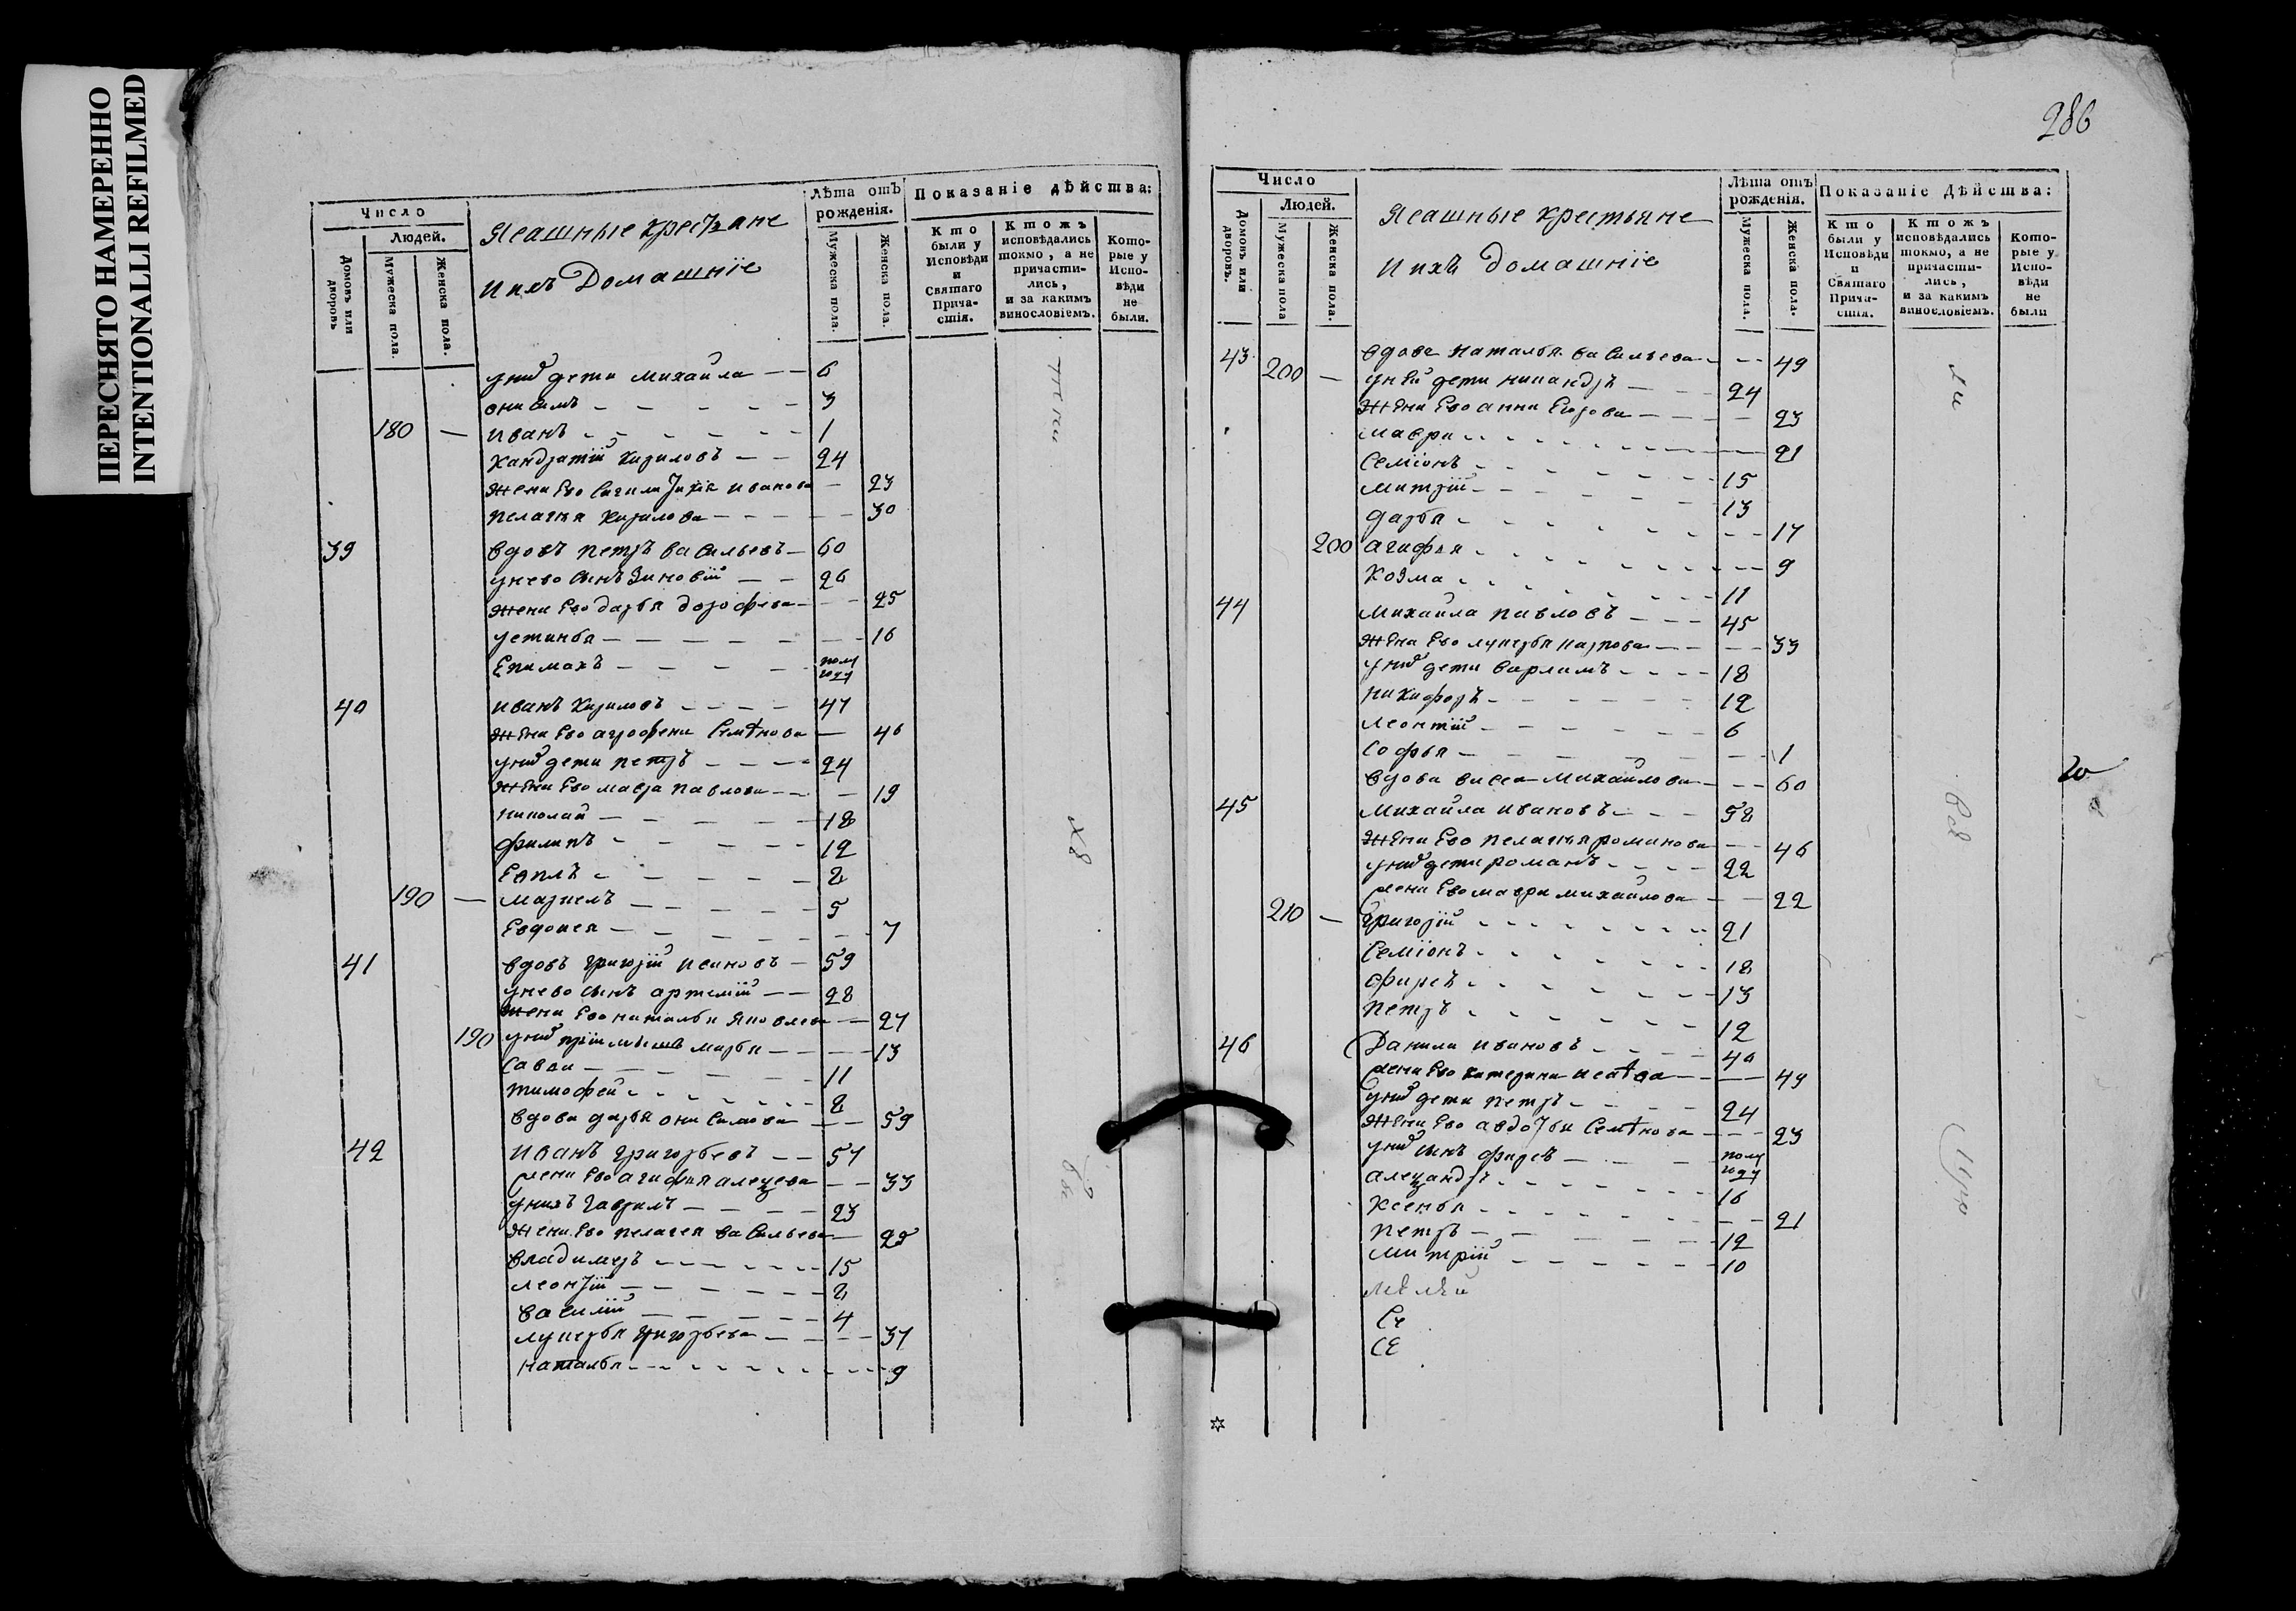 ПЕРЕСНЯТО НАМЕРЕННО
INTENTIONALLI REFILMED
Число
Людей.
Домовъ или дворовъ
Мужеска пола.
Женска пола.
Ясашныя крестьяне
и ихъ Домашнїе
Лѣта отъ рожденія.
Мужеска пола.
Женска пола.
Показаніе дѣйства:
Кто были у Исповѣди и Святаго Прича-стія.
Ктожъ исповѣдались токмо, а не причасти-лись, и за какимъ винословіемъ.
Кото-рые у Испо-вѣди не были.
у них дети Михайла — — 6
онисимъ - - - - - 3
180 — иванъ - - - - - 1
кандратїй кириловъ — — 24
жена ево иванова — 23
пелагия кирилова - - - - 30
39 вдовъ петръ васильевъ — 60
у нево сынъ Зиновїй — — 26
жена ево дарья дорофеева - - 25
устинья - - - - - 16
Епимахъ - - - - полу году
40 иванъ кириловъ - - - - 47
жена ево агрофена семѣнова — 46
у них дети петръ - - - - 24
жена ево мавра павлова - - — 19
николай - - - - - 18
филипъ - - - - - 12
Евплъ - - - - - 8
190 — маркелъ - - - - 5
Евдокея - - - - - 7
41 вдовъ григорїй исаковъ — 59
у нево сынъ артемїй — — 28
жена ево наталья яковлева — — 27
190 у них прїимышъ марья - - - - 13
савва - - - - - 11
тимофей - - - - - 8
вдова дарья онисимова — — 59
42 иванъ григорьевъ — — 57
жена ево агафия алецева — — 33
у нихъ гаврилъ - - - - 23
жена ево пелагея васильева — 25
владимеръ - - - - - 15
леонтїй - - - - - 8
василїй - - - - - 4
лукерья григорьева - - - - 37
наталья - - - - - 9
286
Число
Людей.
Домовъ или дворовъ.
Мужеска пола
Женска пола.
Ясашныя крестьяне
и ихъ домашнїе
Лѣта отъ рожденія.
Мужеска пола.
Женска пола.
Показаніе Дѣйства:
Кто были у Исповѣди и Святаго Прича-стія.
Ктожъ исповѣдались токмо, а не причасти-лись, и за какимъ винословіемъ.
Кото-рые у Испо-вѣди не были
43 вдова наталья васильева - - - 49
200 — у ней дети никандръ - - 24
жена ево анна Егорова - - - 23
мавра - - - - - 21
семїонъ - - - - - 15
митрїй - - - - - 13
дарья - - - - - 17
200 агафья - - - - - 9
козма - - - - - 11
44 михайла павловъ - - - 45
жена ево лукерья карпова - - - 33
у них дети варламъ - - - - 18
никифоръ - - - - - 12
леонтїй - - - - - 6
софья - - - - - 1
вдова васса михайлова - - - 60
45 михайла ивановъ - - - 58
жена ево пелагия романова - - 46
у них дети романъ - - - - 22
жена ево мавра михайлова — — 22
210 — григорїй - - - - - 21
семїонъ - - - - - 18
фирсъ - - - - - 13
петръ - - - - - 12
46 Данила ивановъ - - - - 40
жена ево катерина исаева - - — 49
у них дети петръ - - - - 24
жена ево авдотья семѣнова - - - 23
у них сынъ фирсъ - - - полу году
алеѯандръ - - - - - 16
ксенья - - - - - 21
петръ - - - - - 12
митрїй - - - - - 10